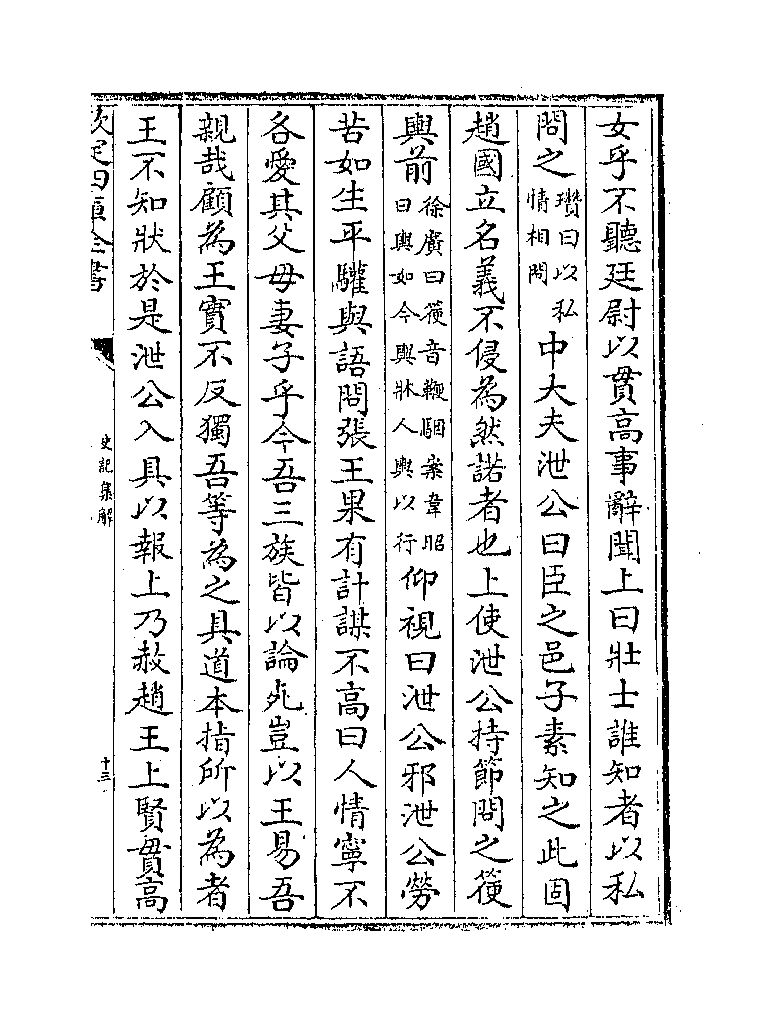 女乎不聽廷尉以貫高事辭聞上曰壯士誰知者以私
問之瓚曰以私情相問中大夫泄公曰臣之邑子素知之此固
趙國立名義不侵為然諾者也上使泄公持節問之箯
輿前徐廣曰箯音鞭駰案韋昭曰輿如今輿牀人輿以行仰視曰泄公邪泄公勞
苦如生平驩與語問張王果有計謀不高曰人情寧不
各愛其父母妻子乎今吾三族皆以論死豈以王易吾
親哉顧為王實不反獨吾等為之具道本指所以為者
王不知狀於是泄公入具以報上乃赦趙王上賢貫高
欽定四庫全書
史記集解
十三